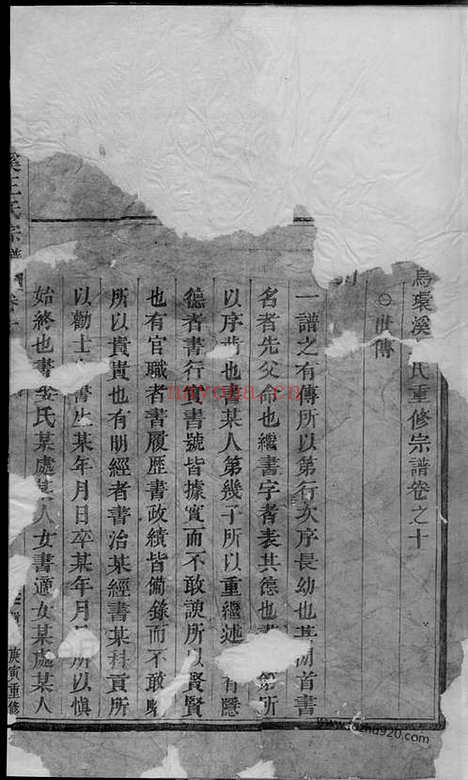 烏環溪氏重修宗譜卷之十
○世傳
一譜之有傳所以第行次序長幼也其開首書
名者先父命也繼書字者表其德也書第所
以序昔也書某人第幾子所以重繼述有隱
德者書行實書號皆據實而不敢諛所以賢賢
也有官職者書履歷書政績皆備錄而不敢略
所以貴貴也有明經者書治某經書某科貢所
以勸士書生某年月日卒某年月日所以慎
始終也書娶氏某處某人女書適女某處某人
溪王氏宗譜
庚寅重修
nayona.cn
www.dazhu920.com